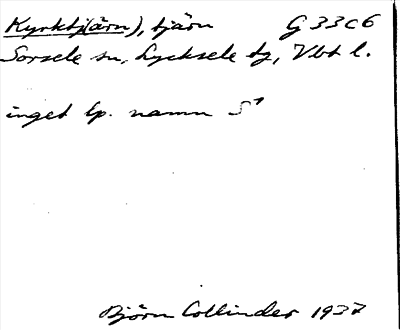 Kyrktj(ärn), tjärn G 33c6
Sorsele sn, Lycksele tg, Vbt l.
inget lp. namn S¹
Björn Collinder 1937